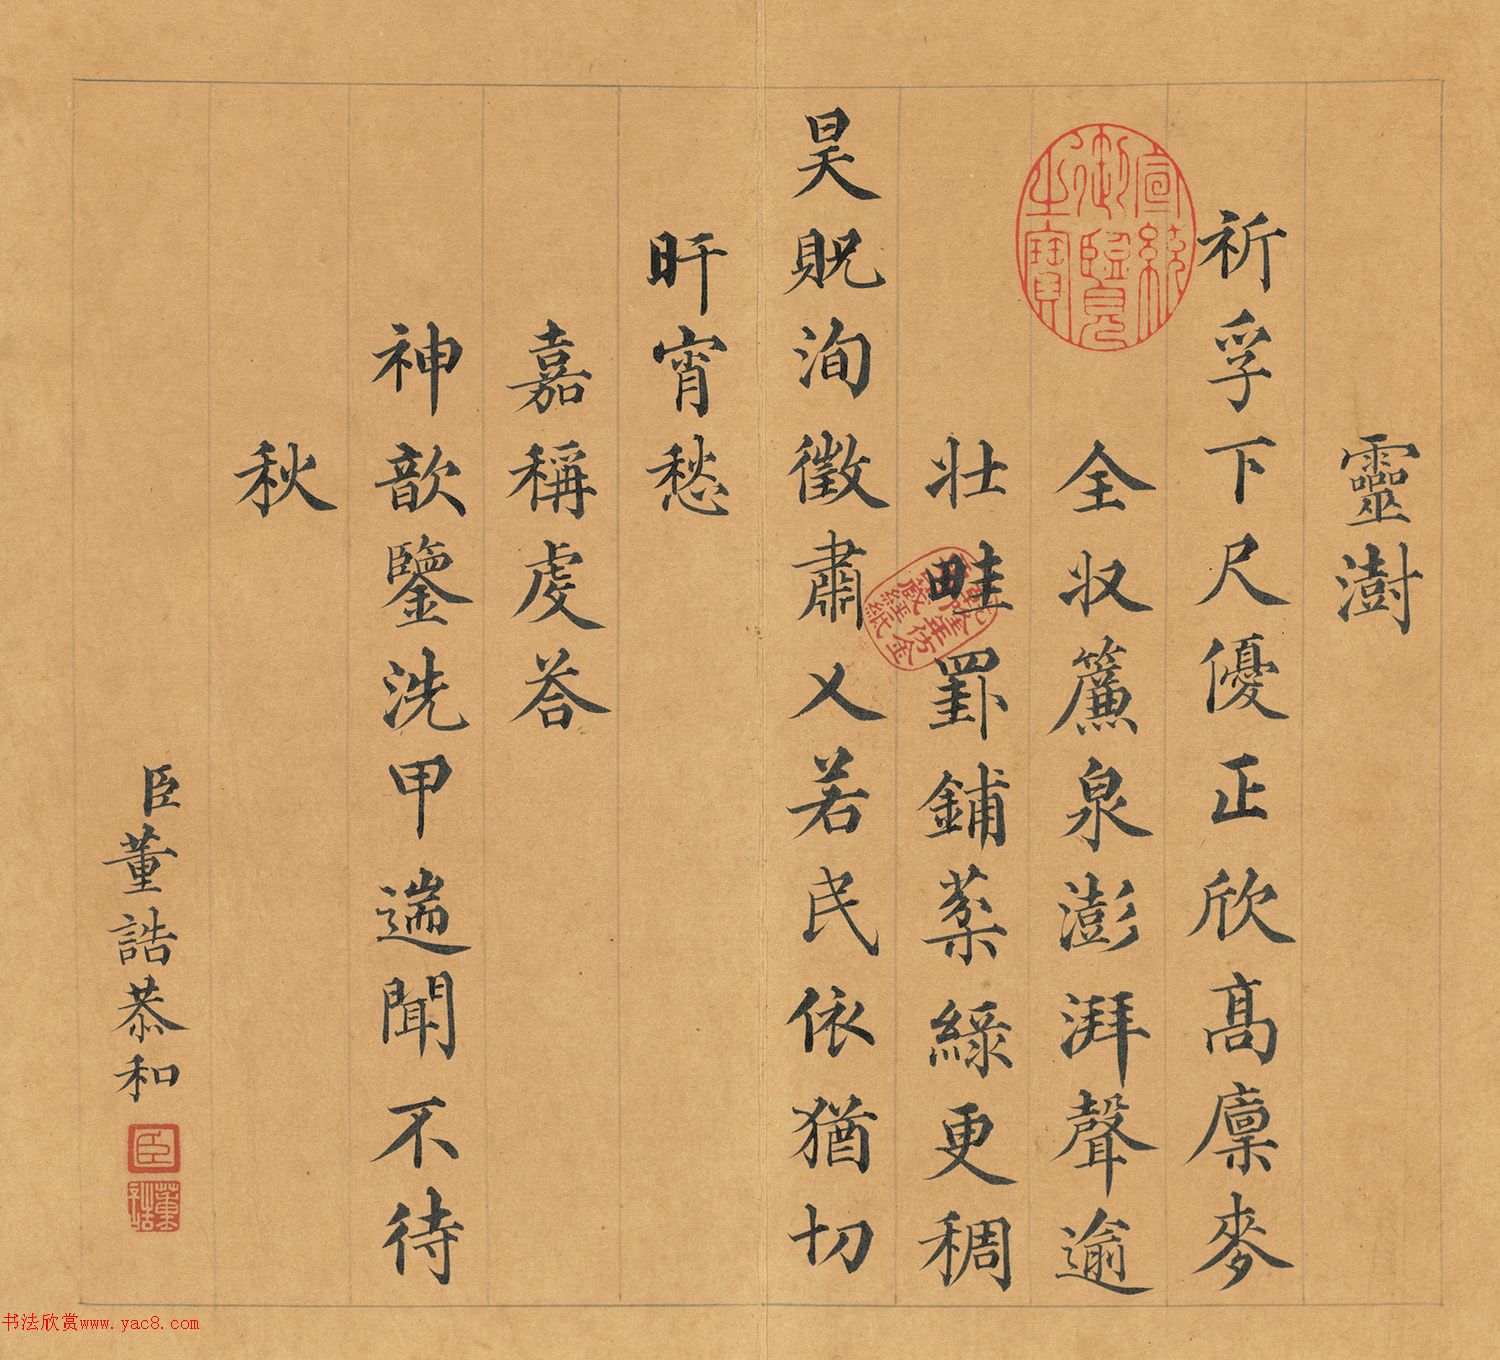 靈澍
祈孚下尺優正欣高廩麥
全収簾泉澎湃聲逾
壮畦罫鋪棻綠更稠
昊貺洵徵肅乂若民依猶切
旰宵愁
嘉稱虔荅
神歆鑒洗甲遄聞不待
秋
臣董誥恭和
宣統御覽之寶
乾隆年仿金粟山藏經紙
臣
董誥
书法欣赏www.yac8.com